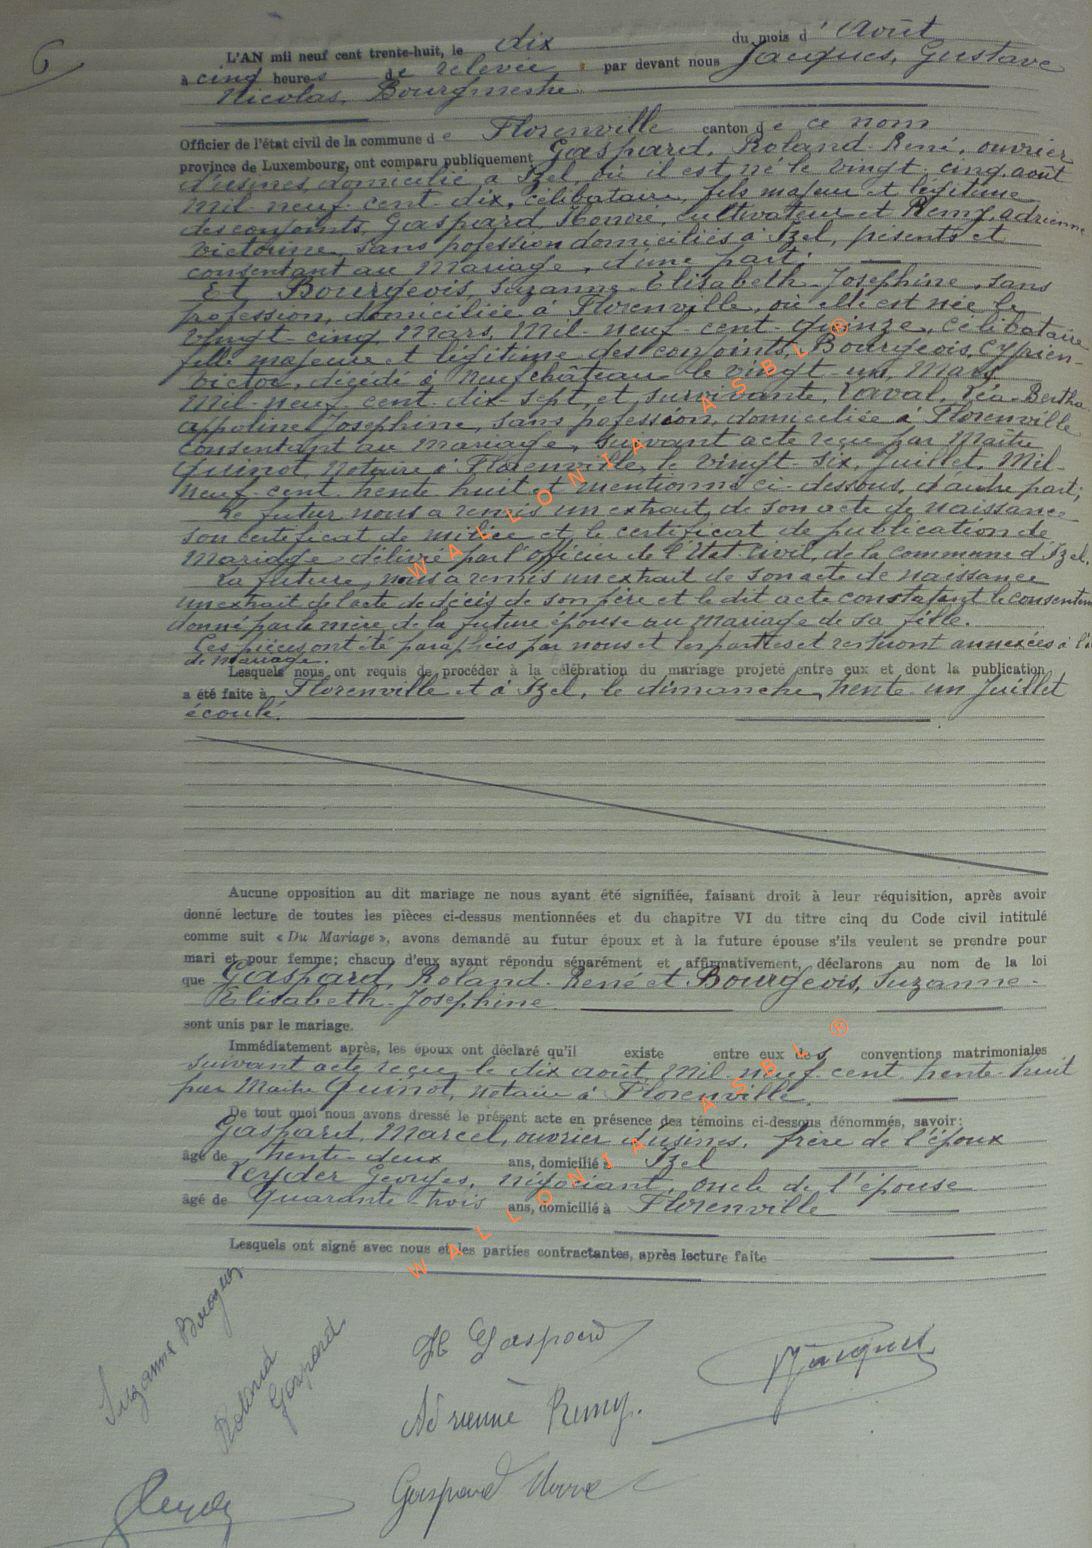 6
L'AN mil neuf cent trente-huit, le dix du mois d'Août
à cinq heures de relevée par devant nous Jacques, Gustave
Nicolas, Bourgmestre
Officier de l'état civil de la commune de Florenville canton de ce nom
province de Luxembourg, ont comparu publiquement Gaspard, Roland-René, ouvrier
d'usines, domicilié à Izel, où il est né le vingt-cinq août
Mil-neuf-cent-dix, célibataire, fils majeur et légitime
des conjoints, Gaspard, Honoré, cultivateur et Remy, adrienne
victorine, sans pofession domiciliés à Izel, présents et
consentant au Mariage, d'une part;
Et Bourgeois, Suzanne-Elisabeth-Josephine, sans
profession, domiciliée à Florenville, où elle est née le
Vingt-cinq, Mars, Mil-neuf-cent-quinze, célibataire
fille majeure et légitime des conjoints, Bourgeois, Cyprien-
Victor, décédé à Neufchâteau le vingt un, Mars
Mil-neuf-cent-dix-sept, et, survivante, Laval, Léa-Bertha
appoline, Josephine, sans pofession, domiciliée à Florenville
Consentant au mariage, Suivant acte reçu par Maître
Quinot, Notaire à Florenville, le Vingt-Six, Juillet, Mil-
neuf-cent trente huit et mentionné ci-dessous, d'autre part;
Le futur nous a remis un extrait de son acte de naissance
son certificat de milice et le certificat de publication de
Mariage délivré par l'officier de l'Etat Civil, de la commune d'Izel.
La future, nous a remis un extrait de son acte de naissance
un extrait de l'acte de décès de son père et le dit acte constatant le consentem
donné par la mère, de la future épouse au Mariage de sa fille.
Ces pièces ont été paraphées par nous et les parties et resteront annexées à l'
de mariage.
Lesquels nous ont requis de procéder à la célébration du mariage projeté entre eux et dont la publication
a été faite à Florenville et à Izel, le dimanche, trente-un Juillet
écoulé.
Aucune opposition au dit mariage ne nous ayant été signifiée, faisant droit à leur réquisition, après avoir
donné lecture de toutes les pièces ci-dessus mentionnées et du chapitre VI du titre cinq du Code civil intitulé
comme suit « Du Mariage », avons demandé au futur époux et à la future épouse s'ils veulent se prendre pour
mari et pour femme; chacun d'eux ayant répondu séparément et affirmativement, déclarons au nom de la loi
que Gaspard, Roland-René et Bourgeois, Suzanne-
Elisabeth-Josephine
sont unis par le mariage.
Immédiatement après, les époux ont déclaré qu'il existe entre eux des conventions matrimoniales
suivant acte reçu le dix août, Mil-neuf-cent trente-huit
par Maître Quinot, notaire à Florenville.
De tout quoi nous avons dressé le présent acte en présence des témoins ci-dessous dénommés, savoir:
Gaspard, Marcel, ouvrier d'usines, frère de l'époux
âgé de trente-deux ans, domicilié à Izel
Leyder Georges, négociant, oncle de l'épouse
âgé de Quarante-trois ans, domicilié à Florenville
Lesquels ont signé avec nous et les parties contractantes, après lecture faite
Suzanne Bourgeois
Roland Gaspard
H Gaspard
Jacques
Adrienne Remy.
Gaspard Marcel
Leyder
WALLONIA ASBL ®
WALLONIA ASBL ®